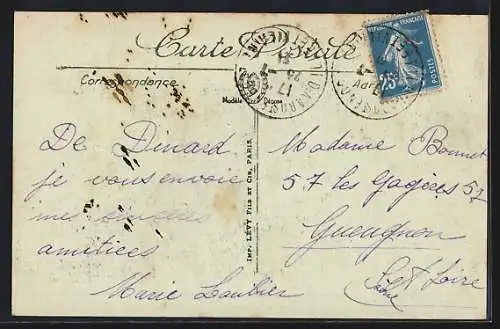 Carte Postale
Correspondance
REPUBLIQUE FRANÇAISE
POSTES
25
Modèle Déposé
De Dinard
je vous envoie
mes sincères
amitiées
Marie
Madame Bonnet
57 les Gagères 57
Gueugnon
Saône et Loire
IMP. LÉVY FILS ET CIE, PARIS.